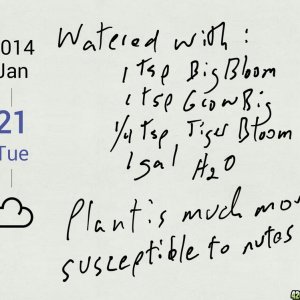 2014
Jan
21
Tue
Watered with:
1 tsp BigBloom
1 tsp GrowBig
1/4 tsp Tiger Bloom
1 gal H2O
Plant is much mor
susceptible to nutes